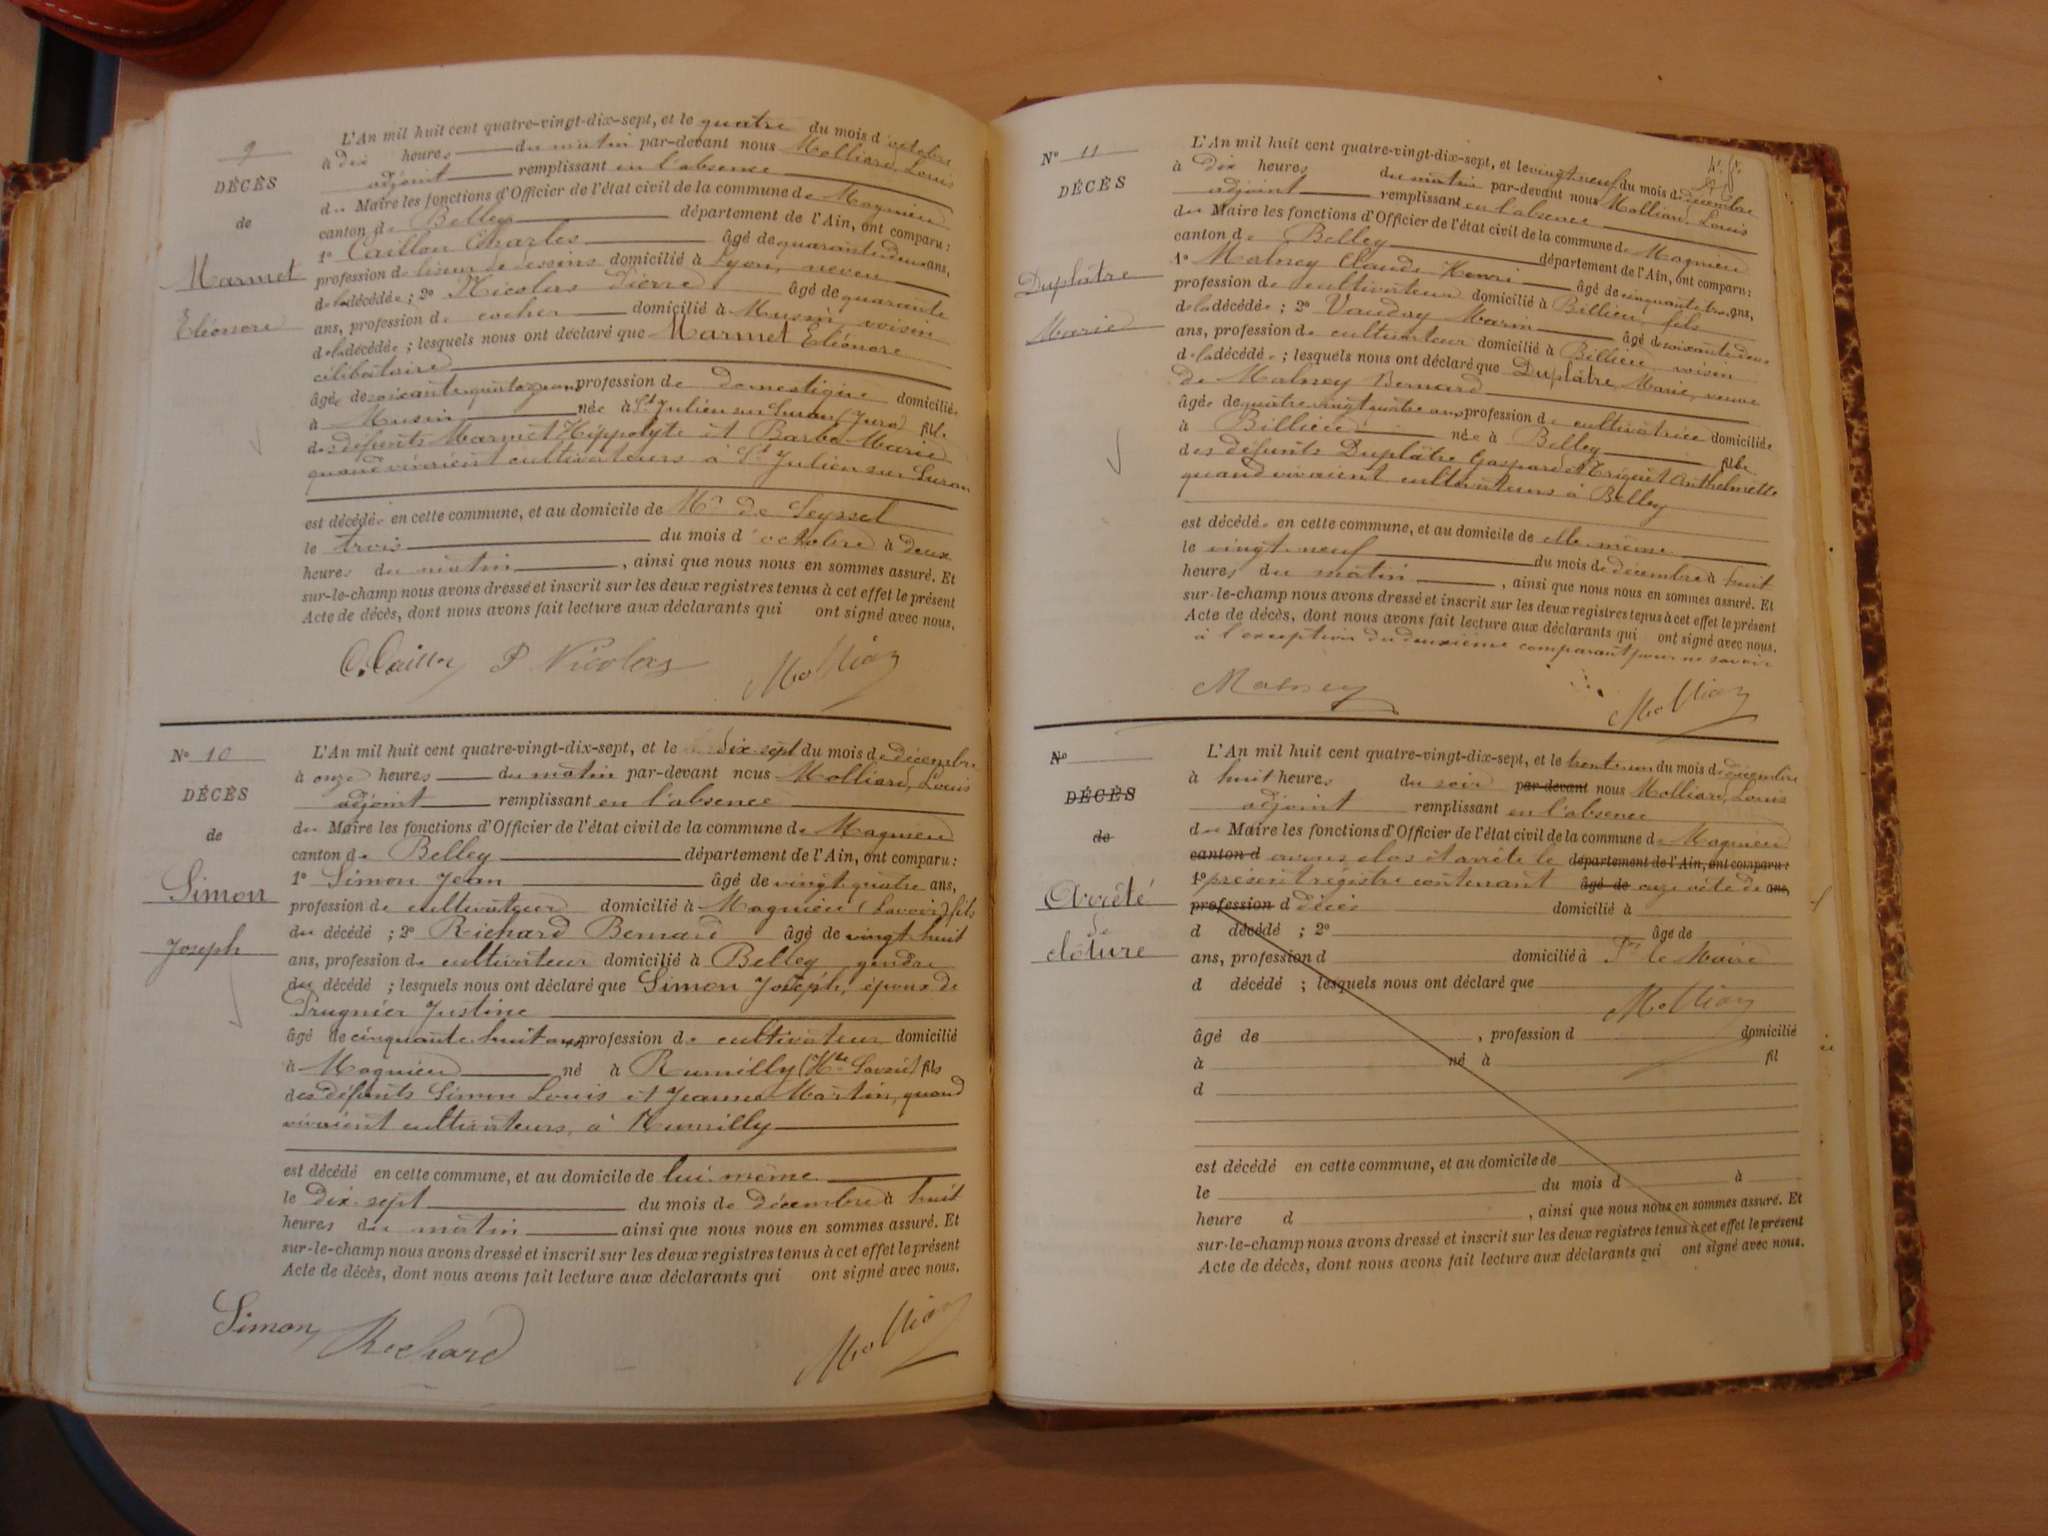 9
DÉCÈS
de
Marmet
Eléonore
L'An mil huit cent quatre-vingt-dix-sept, et le quatre du mois d'octobre
à dix heures du matin par-devant nous Molliard, Louis
adjoint remplissant en l'absence
du Maire les fonctions d'Officier de l'état civil de la commune de Magnieu
canton de Belley département de l'Ain, ont comparu :
1° Caillon Charles âgé de quarante deux ans,
profession de liseur de dessins domicilié à Lyon, neveu
de la décédée ; 2° Nicolas Pierre âgé de quarante
ans, profession de cocher domicilié à Musin voisin
de la décédée ; lesquels nous ont déclaré que Marmet Eléonore
célibataire
âgée de soixante quatorze ans profession de domestique domiciliée
à Musin née à St Julien sur Suran (Jura) fille
des défunts Marmet Hippolyte et Barbe Marie
quand vivaient cultivateurs à St Julien sur Suran
est décédée en cette commune, et au domicile de Mr de Seyssel
le trois du mois d'octobre à deux
heures du matin, ainsi que nous nous en sommes assuré. Et
sur-le-champ nous avons dressé et inscrit sur les deux registres tenus à cet effet le présent
Acte de décès, dont nous avons fait lecture aux déclarants qui ont signé avec nous.
C. Caillon P Nicolas Molliard
N° 10
DÉCÈS
de
Simon
Joseph
L'An mil huit cent quatre-vingt-dix-sept, et le dix-sept du mois de décembre
à onze heures du matin par-devant nous Molliard, Louis
adjoint remplissant en l'absence
du Maire les fonctions d'Officier de l'état civil de la commune de Magnieu
canton de Belley département de l'Ain, ont comparu :
1° Simon Jean âgé de vingt quatre ans,
profession de cultivateur domicilié à Magnieu (Savoir) fils
du décédé ; 2° Richard Bernard âgé de vingt huit
ans, profession de cultivateur domicilié à Belley gendre
du décédé ; lesquels nous ont déclaré que Simon Joseph, époux de
Prugnier Justine
âgé de cinquante huit ans profession de cultivateur domicilié
à Magnieu né à Rumilly (Hte Savoie) fils
des défunts Simon Louis et Jeanne Martin, quand
vivaient cultivateurs, à Rumilly
est décédé en cette commune, et au domicile de lui-même
le dix-sept du mois de décembre à huit
heures du matin ainsi que nous nous en sommes assuré. Et
sur-le-champ nous avons dressé et inscrit sur les deux registres tenus à cet effet le présent
Acte de décès, dont nous avons fait lecture aux déclarants qui ont signé avec nous.
Simon Richard Molliard
N° 11
DÉCÈS
Duplâtre
Marie
L'An mil huit cent quatre-vingt-dix-sept, et le vingt neuf du mois de décembre
à dix heures du matin par-devant nous Molliard, Louis
adjoint remplissant en l'absence
du Maire les fonctions d'Officier de l'état civil de la commune de Magnieu
canton de Belley département de l'Ain, ont comparu :
1° Malney Claude Henri âgé de cinquante trois ans,
profession de cultivateur domicilié à Billieu, fils
de la décédée ; 2° Vauday Marin âgé de soixante deux
ans, profession de cultivateur domicilié à Billieu voisin
de la décédée ; lesquels nous ont déclaré que Duplâtre, Marie, veuve
de Malney Bernard
âgée de quatre vingt quatre ans profession de cultivatrice domiciliée
à Billieu née à Belley fille
des défunts Duplâtre Gaspard et Triquet Anthelmette
quand vivaient cultivateurs à Belley
est décédée en cette commune, et au domicile de elle même
le vingt-neuf du mois de décembre à huit
heures du matin, ainsi que nous nous en sommes assuré. Et
sur-le-champ nous avons dressé et inscrit sur les deux registres tenus à cet effet le présent
Acte de décès, dont nous avons fait lecture aux déclarants qui ont signé avec nous.
à l'exception du deuxième comparant pour ne savoir
Malney Molliard
N°
DÉCÈS
de
Arrêté
de
clôture
L'An mil huit cent quatre-vingt-dix-sept, et le trente un du mois de décembre
à huit heures du soir par-devant nous Molliard, Louis
adjoint remplissant en l'absence
du Maire les fonctions d'Officier de l'état civil de la commune de Magnieu
canton d avons clos et arrêté le département de l'Ain, ont comparu :
1° présent régistre contenant âgé de onze acte de ans,
profession d décès domicilié à
d décédé ; 2° âgé de
ans, profession d domicilié à Pr le Maire
d décédé ; lesquels nous ont déclaré que
Molliard
âgé de , profession d domicilié
à né à fil
d
est décédé en cette commune, et au domicile de
le du mois d à
heure d , ainsi que nous nous en sommes assuré. Et
sur-le-champ nous avons dressé et inscrit sur les deux registres tenus à cet effet le présent
Acte de décès, dont nous avons fait lecture aux déclarants qui ont signé avec nous.